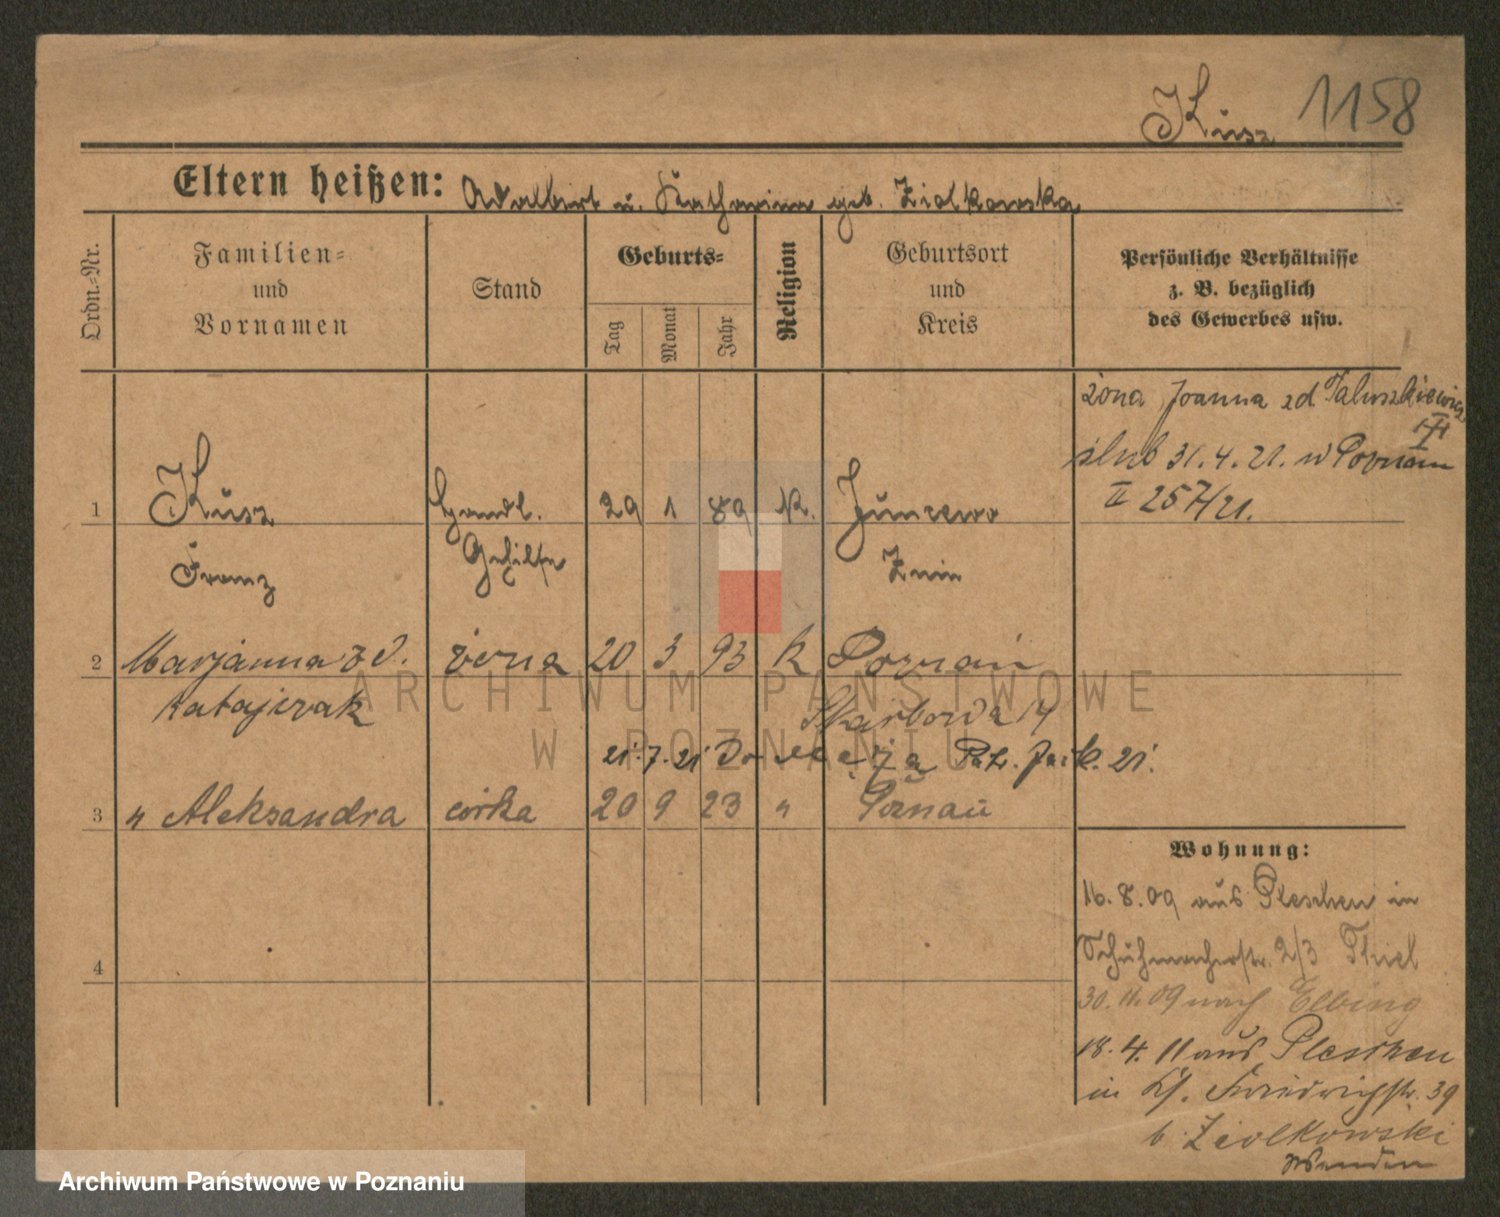 Kusz 1158
Eltern heißen: Adalbert u. Katharina geb. Ziolkowska
Ordn.-Nr.
Familien-
und
Vornamen
Stand
Geburts-
Tag
Monat
Jahr
Religion
Geburtsort
und
Kreis
Persönliche Verhältnisse
z. B. bezüglich
des Gewerbes usw.
żona Joanna zd
ślub 31.4.21. w Poznaniu
II 257/21.
1 Kusz Handl. 29 1 89 K. Juncewo
Franz Gehilfe Znin
2 Marjanna zd. żona 20 3 93 k Poznań
Ratajczak Skarbowa 17
21.7.21 Do męża Paź. 21.
3 " Aleksandra córka 20 9 23 " Poznań
4
Wohnung:
16.8.09 aus Pleschen in
Schuhmacherstr. 2/3 Thiel
30.11.09 nach Elbing
18.4.11 aus Pleschen
in Kl. Friedrichstr. 39
b. Ziolkowski
Wenden
ARCHIWUM PAŃSTWOWE
W POZNANIU
Archiwum Państwowe w Poznaniu